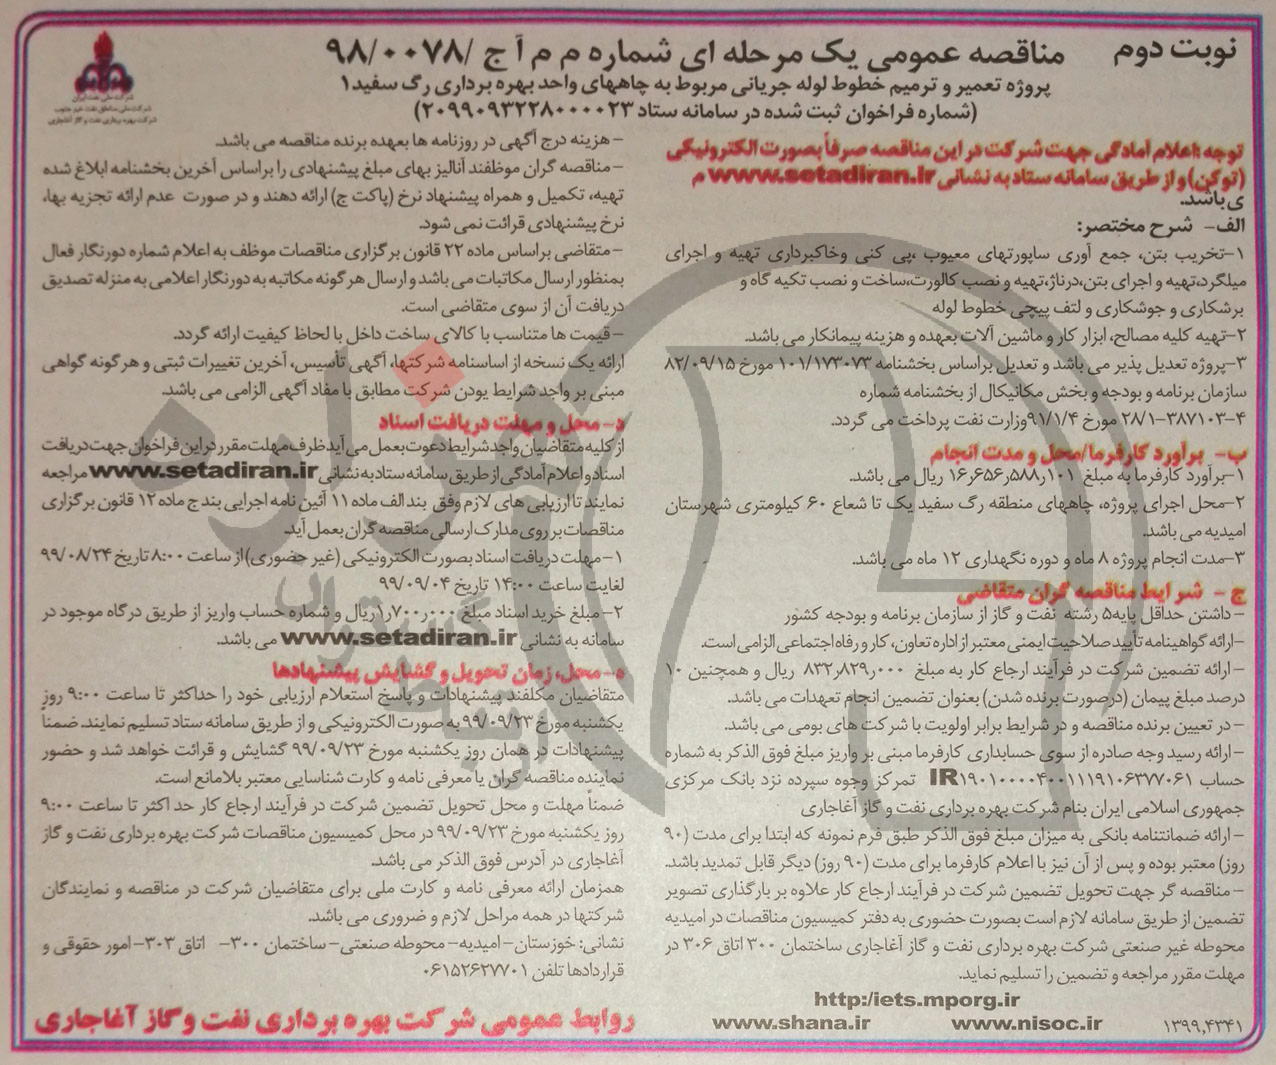 نوبت دوم
مناقصه عمومی یک مرحله ای شماره م م آ ج /۹۸/۰۰۷۸
پروژه تعمیر و ترمیم خطوط لوله جریانی مربوط به چاههای واحد بهره برداری رگ سفید۱
(شماره فراخوان ثبت شده در سامانه ستاد ۲۰۹۹۰۹۳۲۲۸۰۰۰۰۲۳)
شرکت ملی نفت ایران
شرکت ملی مناطق نفت خیز جنوب
شرکت بهره برداری نفت و گاز آغاجاری
توجه :اعلام آمادگی جهت شرکت در این مناقصه صرفاً بصورت الکترونیکی
(توکن) و از طریق سامانه ستاد به نشانی www.setadiran.ir م
ی باشد.
الف- شرح مختصر:
۱-تخریب بتن، جمع آوری ساپورتهای معیوب ،پی کنی وخاکبرداری تهیه و اجرای
میلگرد،تهیه و اجرای بتن،درناژ،تهیه و نصب کالورت،ساخت و نصب تکیه گاه و
برشکاری و جوشکاری و لتف پیچی خطوط لوله
۲-تهیه کلیه مصالح، ابزار کار و ماشین آلات بعهده و هزینه پیمانکار می باشد.
۳-پروژه تعدیل پذیر می باشد و تعدیل براساس بخشنامه ۱۰۱/۱۷۳۰۷۳ مورخ ۸۲/۰۹/۱۵
سازمان برنامه و بودجه و بخش مکانیکال از بخشنامه شماره
۴-۲۸/۱-۳۸۷۱۰۳ مورخ ۹۱/۱/۴وزارت نفت پرداخت می گردد.
ب- برآورد کارفرما/محل و مدت انجام
۱-برآورد کارفرما به مبلغ ۱۶٫۶۵۶٫۵۸۸٫۱۰۱ ریال می باشد.
۲-محل اجرای پروژه، چاههای منطقه رگ سفید یک تا شعاع ۶۰ کیلومتری شهرستان
امیدیه می باشد.
۳-مدت انجام پروژه ۸ ماه و دوره نگهداری ۱۲ ماه می باشد.
ج - شرایط مناقصه گران متقاضی
-داشتن حداقل پایه۵ رشته نفت و گاز از سازمان برنامه و بودجه کشور
-ارائه گواهینامه تأیید صلاحیت ایمنی معتبر از اداره تعاون، کار و رفاه اجتماعی الزامی است.
-ارائه تضمین شرکت در فرآیند ارجاع کار به مبلغ ۸۳۲٫۸۲۹٫۰۰۰ ریال و همچنین ۱۰
درصد مبلغ پیمان (درصورت برنده شدن) بعنوان تضمین انجام تعهدات می باشد.
-در تعیین برنده مناقصه و در شرایط برابر اولویت با شرکت های بومی می باشد.
-ارائه رسید وجه صادره از سوی حسابداری کارفرما مبنی بر واریز مبلغ فوق الذکر به شماره
حساب IR۱۹۰۱۰۰۰۰۴۰۰۱۱۱۹۱۰۶۳۷۷۰۶۱ تمرکز وجوه سپرده نزد بانک مرکزی
جمهوری اسلامی ایران بنام شرکت بهره برداری نفت و گاز آغاجاری
-ارائه ضمانتنامه بانکی به میزان مبلغ فوق الذکر طبق فرم نمونه که ابتدا برای مدت (۹۰
روز) معتبر بوده و پس از آن نیز با اعلام کارفرما برای مدت (۹۰ روز) دیگر قابل تمدید باشد.
-مناقصه گر جهت تحویل تضمین شرکت در فرآیند ارجاع کار علاوه بر بارگذاری تصویر
تضمین از طریق سامانه لازم است بصورت حضوری به دفتر کمیسیون مناقصات در امیدیه
محوطه غیر صنعتی شرکت بهره برداری نفت و گاز آغاجاری ساختمان ۳۰۰ اتاق ۳۰۶ در
مهلت مقرر مراجعه و تضمین را تسلیم نماید.
http:/iets.mporg.ir
www.shana.ir www.nisoc.ir ۱۳۹۹٫۴۳۴۱
-هزینه درج آگهی در روزنامه ها بعهده برنده مناقصه می باشد.
-مناقصه گران موظفند آنالیز بهای مبلغ پیشنهادی را براساس آخرین بخشنامه ابلاغ شده
تهیه، تکمیل و همراه پیشنهاد نرخ (پاکت ج) ارائه دهند و در صورت عدم ارائه تجزیه بها،
نرخ پیشنهادی قرائت نمی شود.
-متقاضی براساس ماده ۲۲ قانون برگزاری مناقصات موظف به اعلام شماره دورنگار فعال
بمنظور ارسال مکاتبات می باشد و ارسال هر گونه مکاتبه به دورنگار اعلامی به منزله تصدیق
دریافت آن از سوی متقاضی است.
-قیمت ها متناسب با کالای ساخت داخل با لحاظ کیفیت ارائه گردد.
ارائه یک نسخه از اساسنامه شرکتها، آگهی تأسیس، آخرین تغییرات ثبتی و هرگونه گواهی
مبنی بر واجد شرایط بودن شرکت مطابق با مفاد آگهی الزامی می باشد.
د- محل و مهلت دریافت اسناد
از کلیه متقاضیان واجد شرایط دعوت بعمل می آید ظرف مهلت مقرر در این فراخوان جهت دریافت
اسناد و اعلام آمادگی از طریق سامانه ستاد به نشانی www.setadiran.ir مراجعه
نمایند تا ارزیابی های لازم وفق بند الف ماده ۱۱ آئین نامه اجرایی بند ج ماده ۱۲ قانون برگزاری
مناقصات بر روی مدارک ارسالی مناقصه گران بعمل آید.
۱-مهلت دریافت اسناد بصورت الکترونیکی (غیر حضوری) از ساعت ۸:۰۰ تاریخ ۹۹/۰۸/۲۴
لغایت ساعت ۱۴:۰۰ تاریخ ۹۹/۰۹/۰۴
۲-مبلغ خرید اسناد مبلغ ۱٫۷۰۰٫۰۰۰ریال و شماره حساب واریز از طریق درگاه موجود در
سامانه به نشانی www.setadiran.ir می باشد.
ه-محل، زمان تحویل و گشایش پیشنهادها
متقاضیان مکلفند پیشنهادات و پاسخ استعلام ارزیابی خود را حداکثر تا ساعت ۹:۰۰ روز
یکشنبه مورخ ۹۹/۰۹/۲۳ به صورت الکترونیکی و از طریق سامانه ستاد تسلیم نمایند. ضمناً
پیشنهادات در همان روز یکشنبه مورخ ۹۹/۰۹/۲۳ گشایش و قرائت خواهد شد و حضور
نماینده مناقصه گران با معرفی نامه و کارت شناسایی معتبر بلامانع است.
ضمناً مهلت و محل تحویل تضمین شرکت در فرآیند ارجاع کار حداکثر تا ساعت ۹:۰۰
روز یکشنبه مورخ ۹۹/۰۹/۲۳ در محل کمیسیون مناقصات شرکت بهره برداری نفت و گاز
آغاجاری در آدرس فوق الذکر می باشد.
همزمان ارائه معرفی نامه و کارت ملی برای متقاضیان شرکت در مناقصه و نمایندگان
شرکتها در همه مراحل لازم و ضروری می باشد.
نشانی: خوزستان- امیدیه- محوطه صنعتی- ساختمان ۳۰۰- اتاق ۳۰۳- امور حقوقی و
قراردادها تلفن ۰۶۱۵۲۶۲۷۷۰۱
روابط عمومی شرکت بهره برداری نفت و گاز آغاجاری